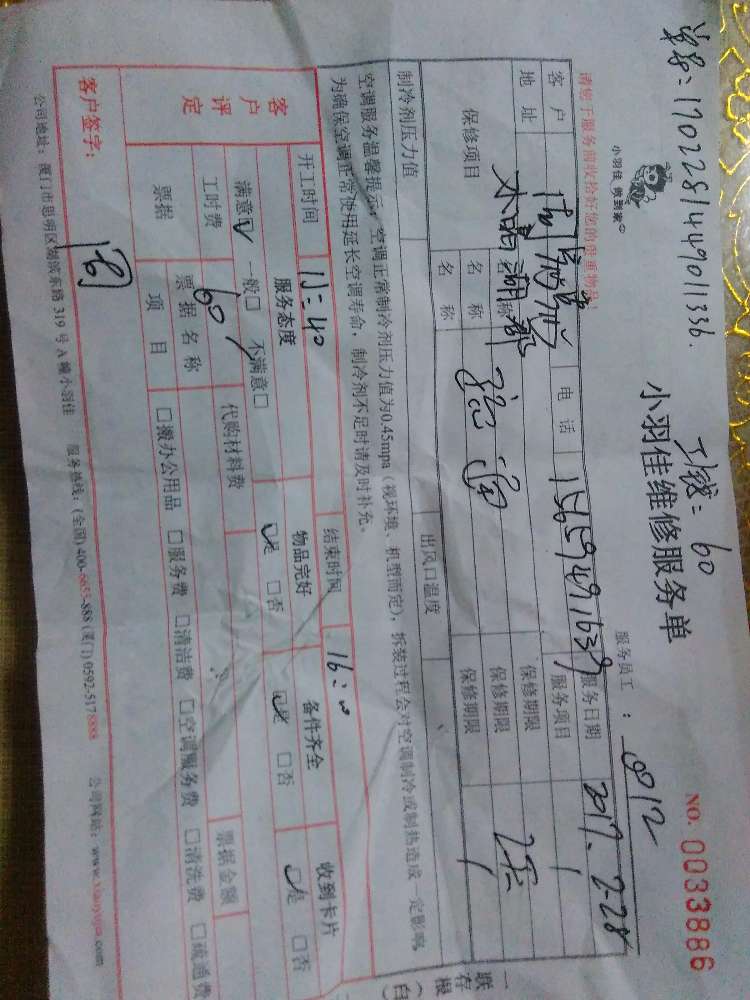 单号:1702281449011336.
工钱:60
小羽佳 做到家
小羽佳维修服务单
NO. 0033886
服务员工: 8012
请您于服务前收拾好您的贵重物品!
客户 电话 15659491639 服务日期 2017.2-28
地址 水晶湖郡 服务项目
保修项目 名称 保修期限
名称 保修期限
名称 保修期限
制冷剂压力值 出风口温度
空调服务温馨提示:空调正常制冷剂压力值为0.45mpa(视环境、机型而定),拆装过程会对空调制冷或制热造成一定影响,
为确保空调正常使用延长空调寿命,制冷剂不足时请及时补充。
开工时间 15:40 结束时间 16:00
客户评定 服务态度 物品完好 备件齐全 收到卡片
满意☑ 一般□ 不满意□ ☑是 □否 ☑是 □否 ☑是 □否
工时费 60 代购材料费 票据金额
票据 票据名称
项目 □搬办公用品 □服务费 □清洁费 □空调服务费 □清洗费 □疏通费
客户签字:
公司地址:厦门市思明区湖滨东路 319 号 A 幢小羽佳 服务热线:(全国) 400-6655-888 (厦门) 0592-5178888 公司网站:www.xiaoyujia.com
一联存根(白